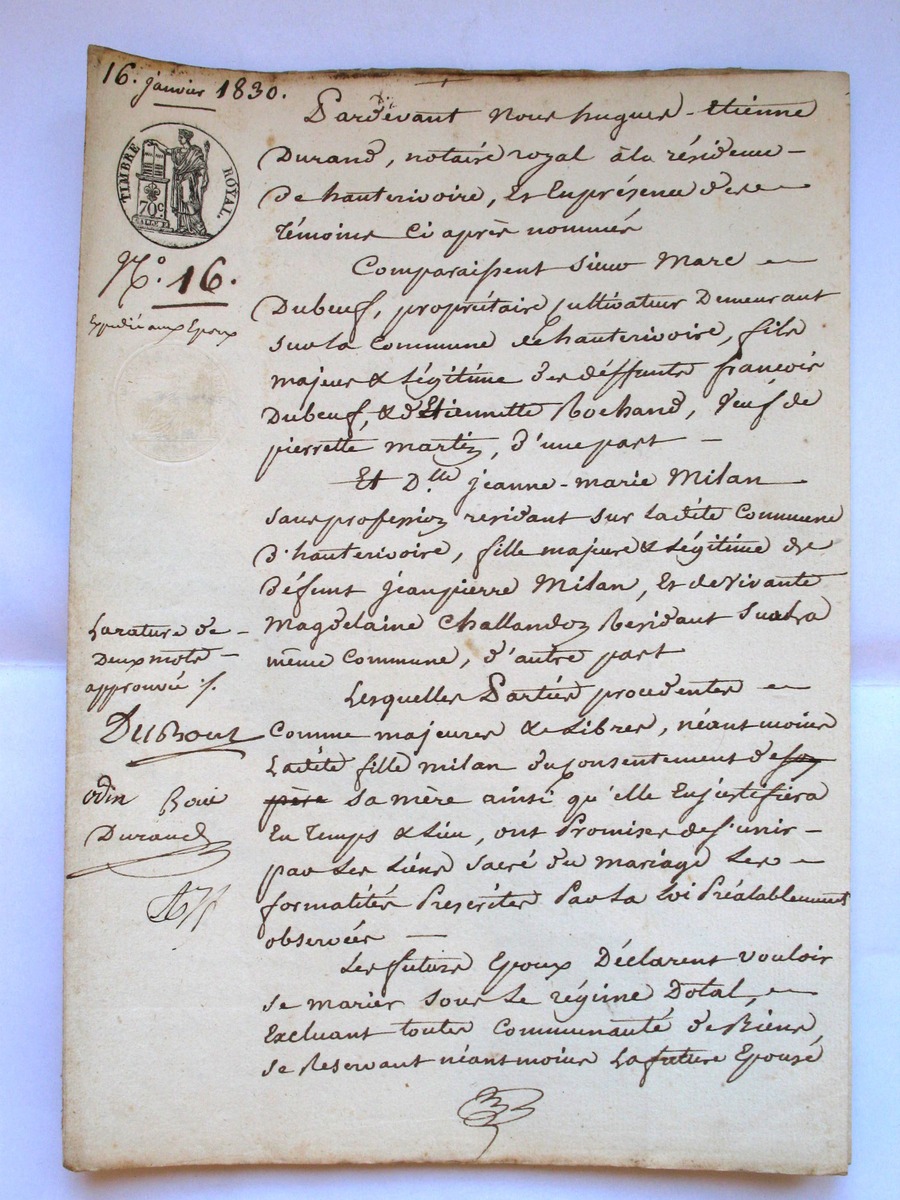 16. janvier 1830.
TIMBRE ROYAL.
70c
N.o 16.
Expedié aux Epoux
Pardevant Nous hugues-Etienne
Durand, notaire royal à la résidence
de hauterivoire, Et En présence des
Témoins Ci après nommés
Comparaissent Sieur Marc
Dubeuf, propriétaire Cultivateur Demeurant
sur la Commune de hauterivoire, fils
majeur & Légitime des déffunts françois
Dubeuf, & d'Etiennette Rochand, Veuf de
pierrette martin, d'une part
Et D.lle jeanne-marie Milan
sans profession residant sur Ladite Commune
d'hauterivoire, fille majeure & Légitime de
Défunt jean pierre Milan, Et de Vivante
Magdelaine Challandon Residant Sur la
même Commune, d'autre part
Lesquelles Parties procedentes
Comme majeures & Libres, néant moins
Ladite fille milan du Consentement de son
père sa mère ainsi qu'elle En justifiera
En Temps & Lieu, ont Promises de s'unir
par Les Liens Sacré du mariage Les
formalités Prescrites Par La Loi Préalablement
observées
Les futurs Epoux Déclarent vouloir
se marier sous Le régime Dotal,
Excluant toutes Communauté de Biens,
se Reservant néant moins La future Epouse
La rature de
Deux mots
approuvée
Odin
Durand